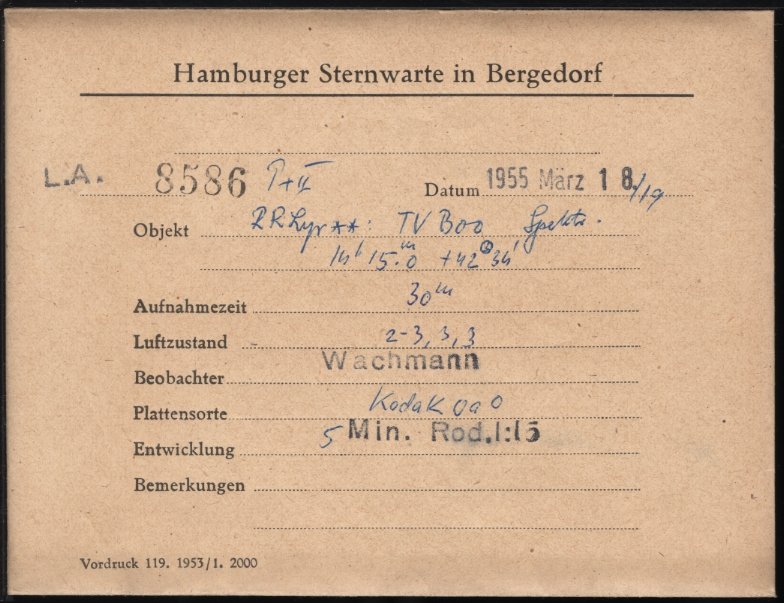 Hamburger Sternwarte in Bergedorf
L.A. 8586 I+II Datum 1955 März 18./19
Objekt RR Lyr **: TV Boo Spektr.
14h 15.m0 +42° 34'
Aufnahmezeit 30m
Luftzustand 2-3, 3, 3
Beobachter Wachmann
Plattensorte Kodak OaO
Entwicklung 5 Min. Rod.1:15
Bemerkungen
Vordruck 119. 1953/1. 2000